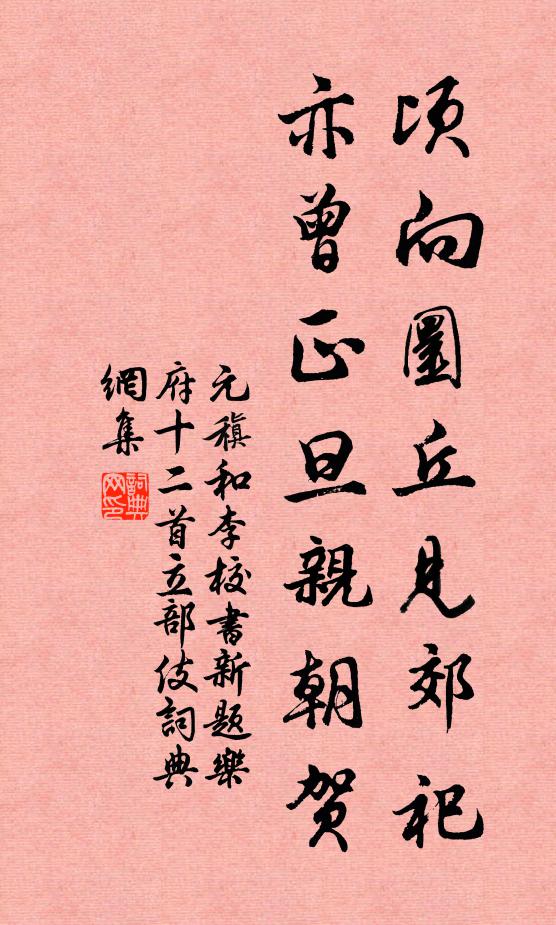 頃向圜丘見郊祀
亦曾正旦親朝賀
元稹和李校書新題樂
府十二首立部伎詞典
網集
詞典
网印